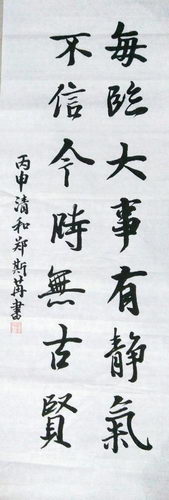 每臨大事有靜氣
不信今時無古賢
丙申清和郑斯苒書